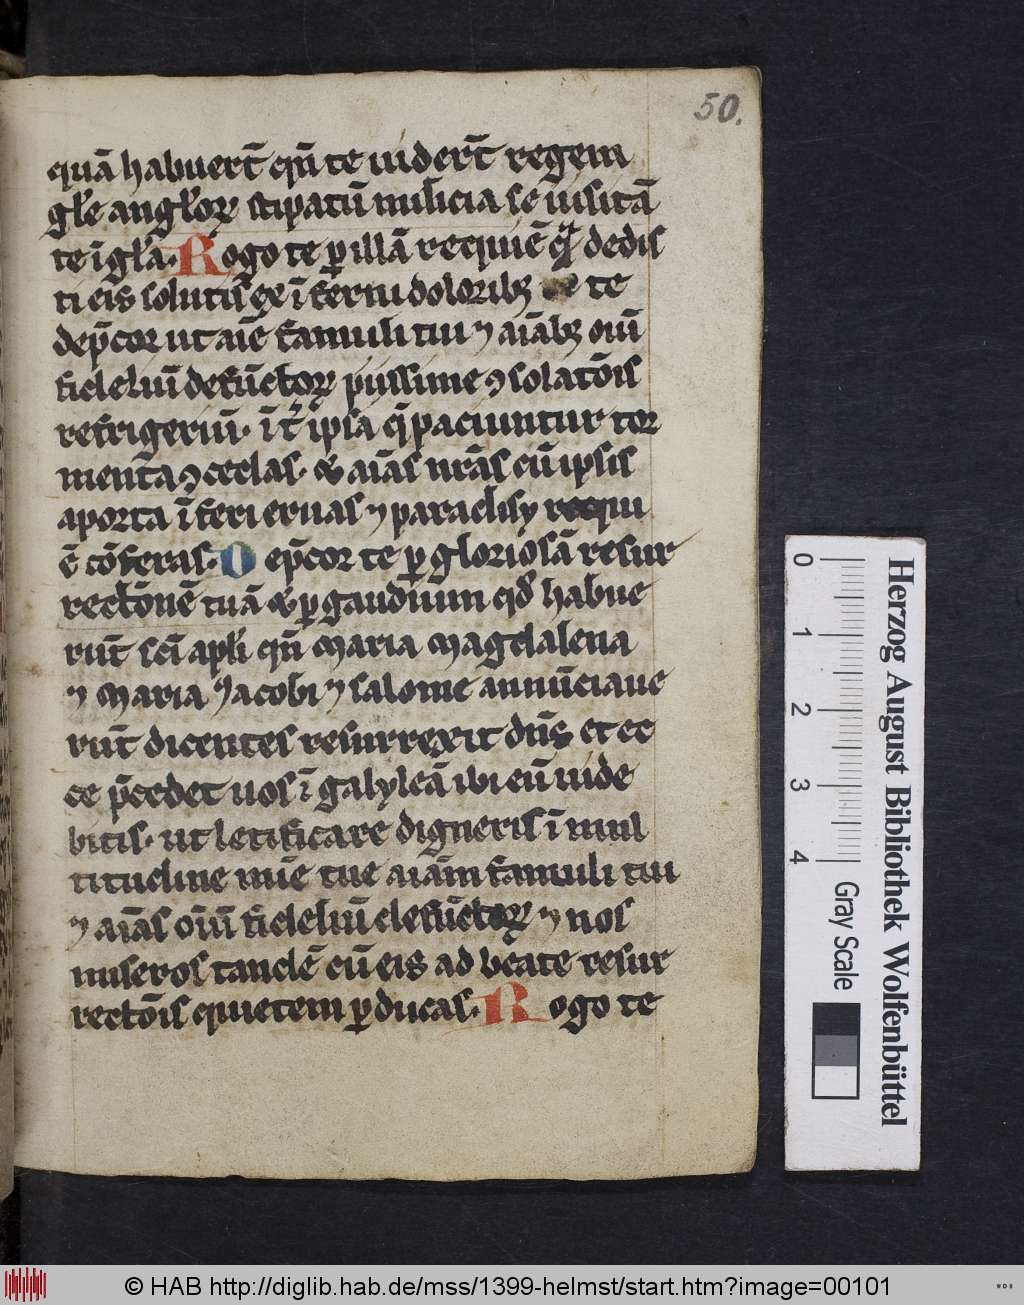 50.
quā habuert̄ qn̄ te uidert̄ regem
gl̓e anglor̓ꝝ stipatū milicia se uisitā
te ī gl̓a. Rogo te ꝑ illā requiē qᷓ dedis
ti eis solutis ex īferni doloribꝫ te
dep̄cor ut aīe famuli tui ⁊ aīabꝫ oīū
fideliū defūctoꝝ piissime ꝯsolatōis
refrigeriū. īt̓ ip̄sa q̄ paciuntur tor
menta ꝯcedas. & aīas nr̄as cū ipsis
a porta īferi eruas ⁊ paradisy requi
ē cōferas. Dep̄cor te ꝑ gloriosā resur
rectōnē tuā & ꝑ gaudium qd̓ habue
rūt sc̄i apl̓i qn̄ maria magdalena
⁊ maria Jacobi ⁊ salome annūciaue
rūt dicentes resurrexit dn̄s et ec
ce p̄cedet uos ī galyleā ibi eū uide
bitis. ut letificare digneris ī mul
titudine mīe tue aīam famuli tui
⁊ aīas oīū fideliū defūctoꝝ ⁊ nos
miseros tandē cū eis ad beate resur
rectōis quietem ꝑducas. Rogo te
0 1 2 3 4
Gray Scale
Herzog August Bibliothek Wolfenbüttel
© HAB http://diglib.hab.de/mss/1399-helmst/start.htm?image=00101